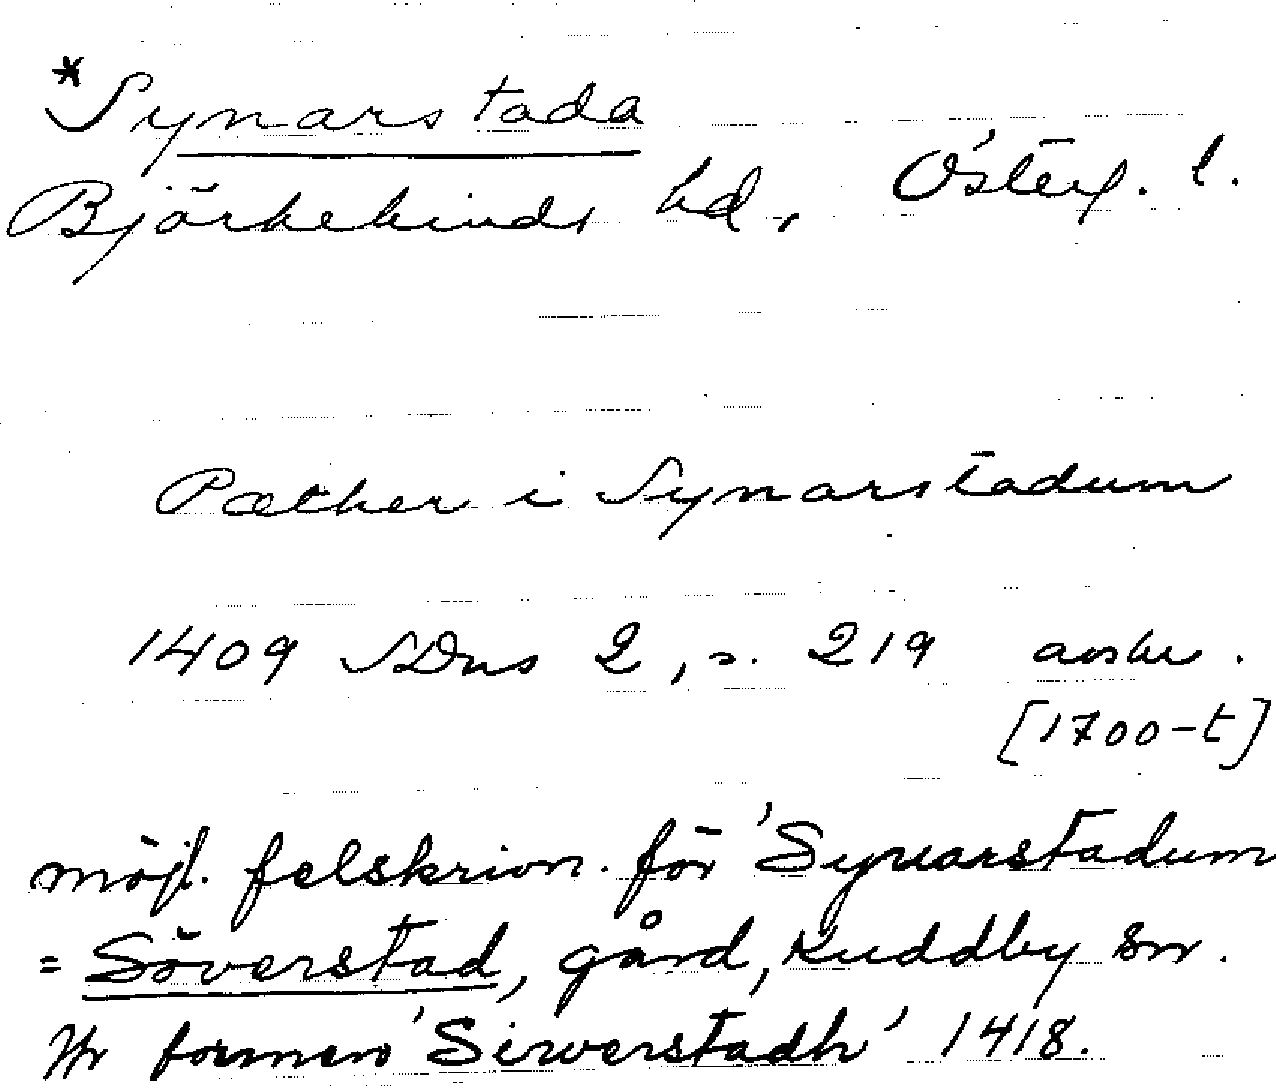 *Synarstada
Björkekinds hd, Österg. l.
Pæther i Synarstadum
1409 SDns 2, s. 219 avskr.
[1700-t]
möjl. felskrivn. för 'Syuarstadum
= Söverstad, gård, Kuddby sn.
Jfr formen 'Siwerstadh' 1418.